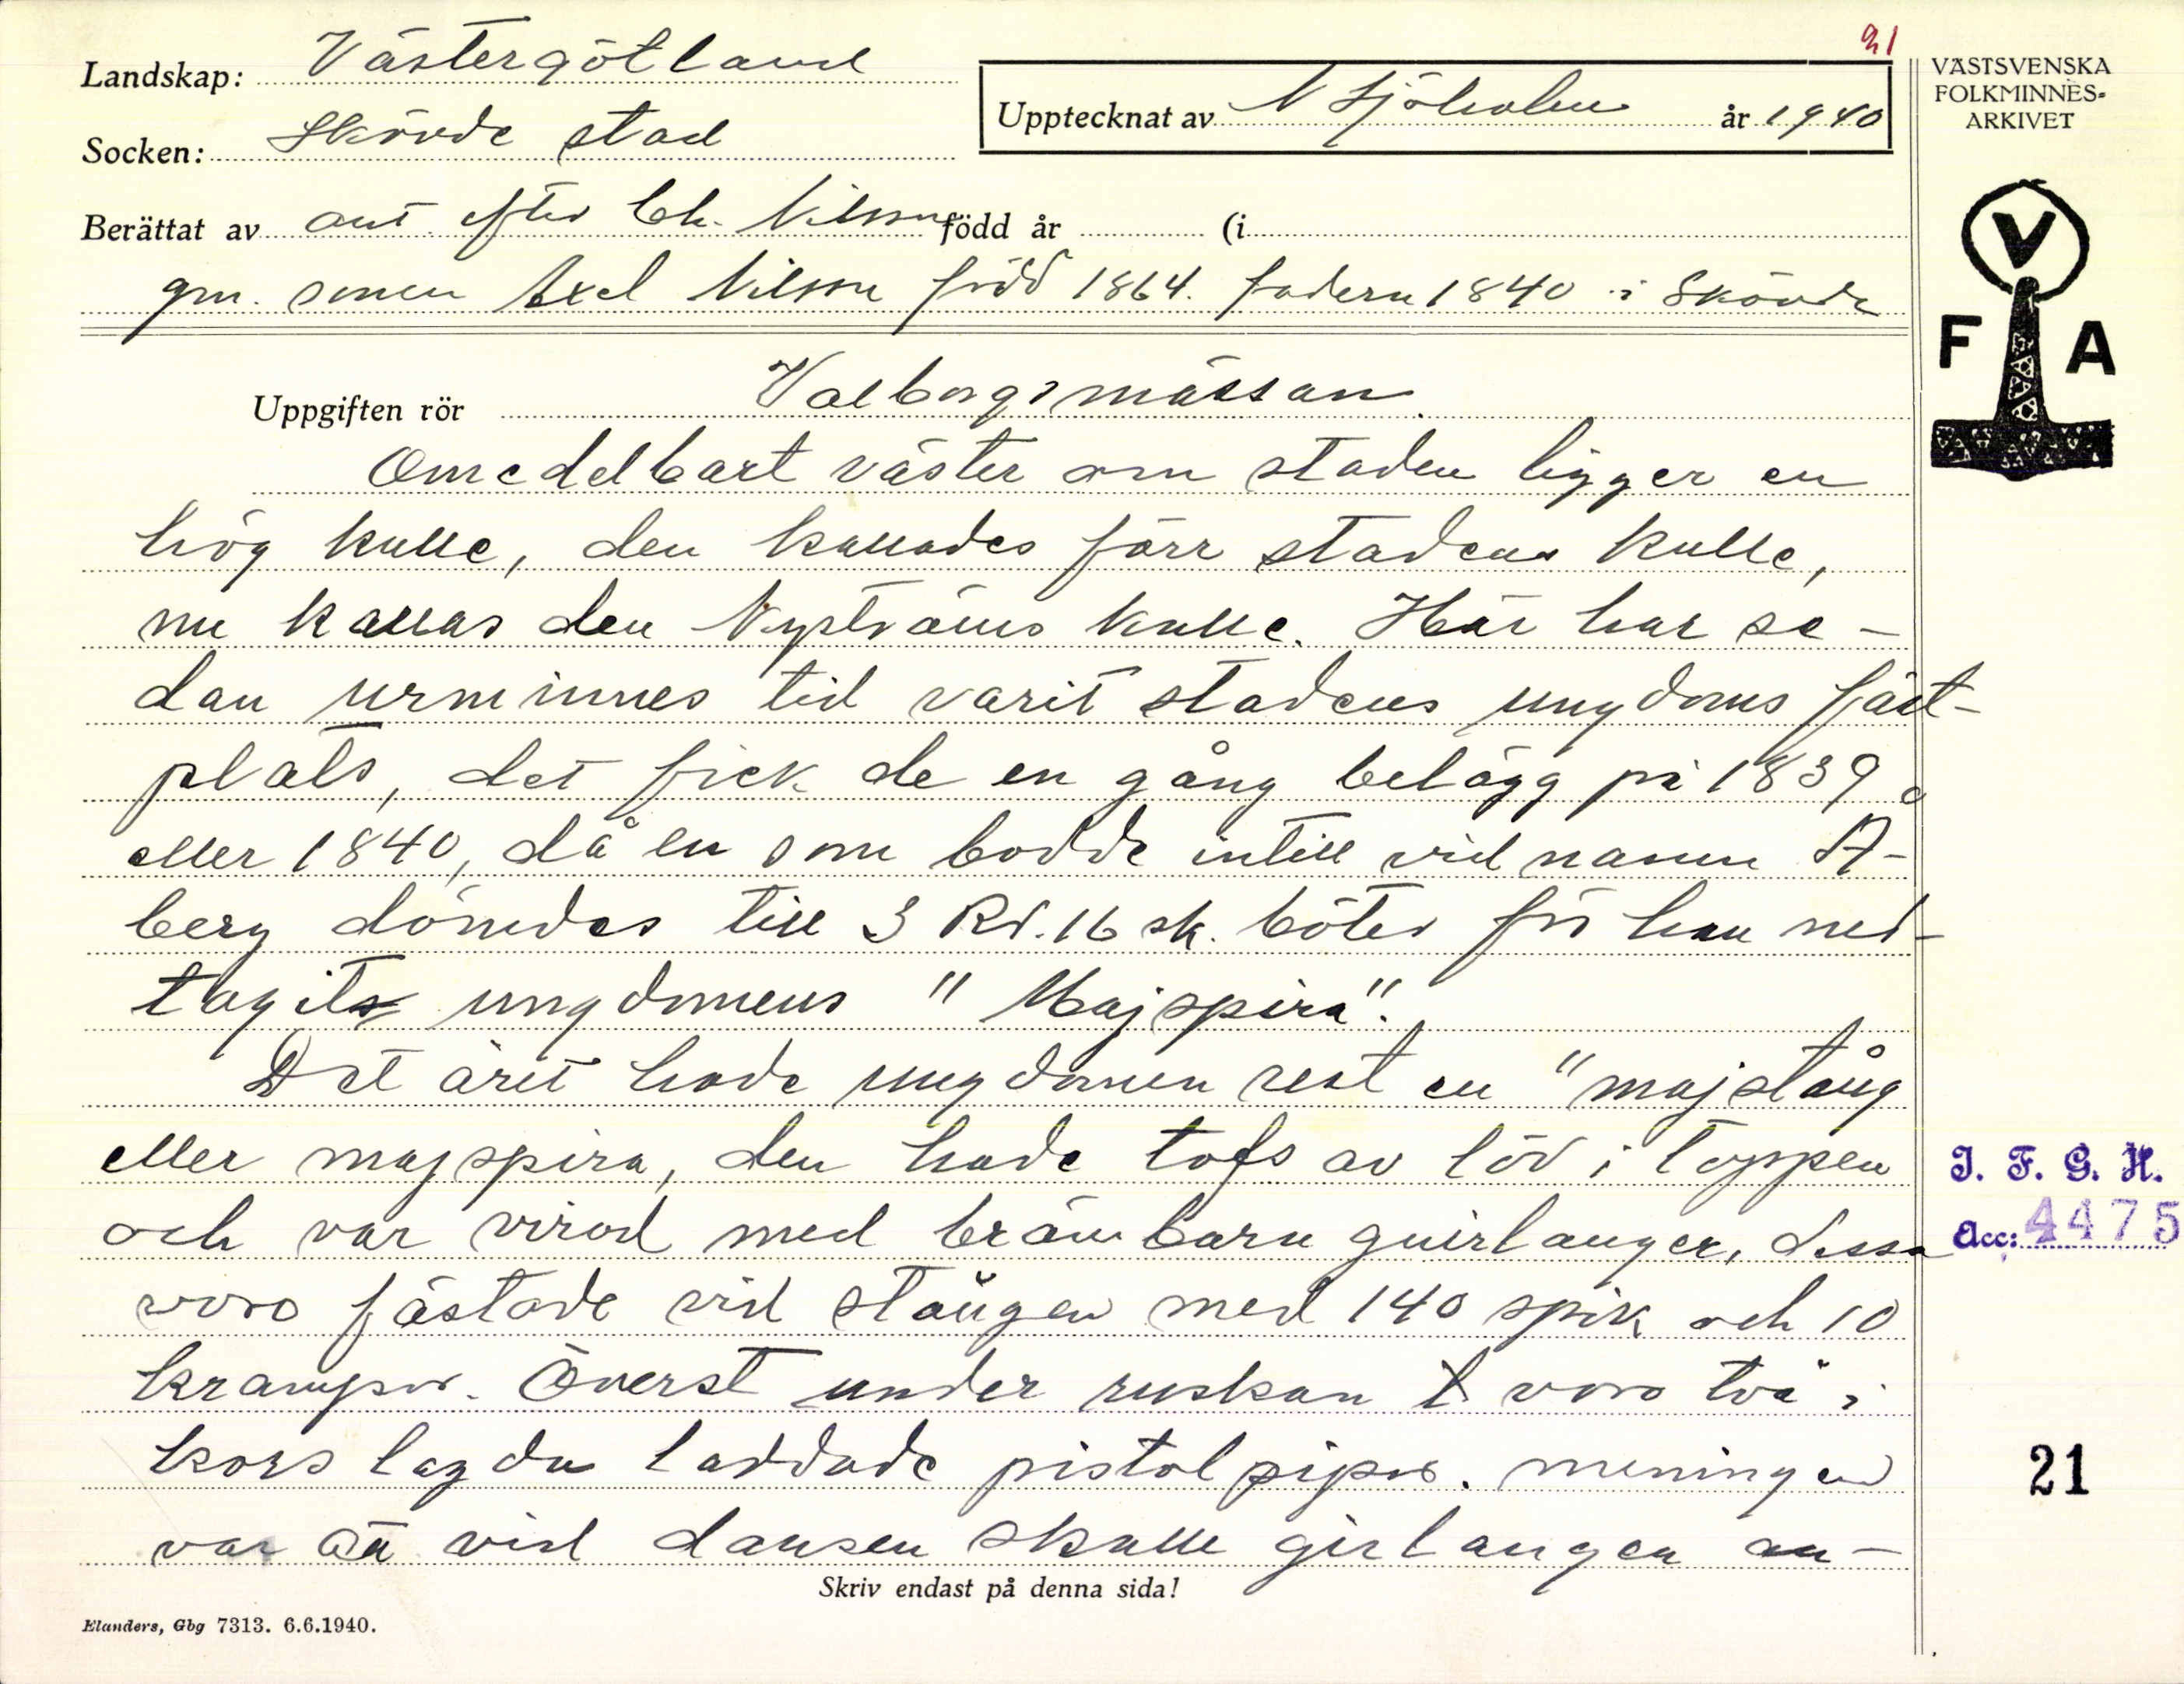 21
Landskap: Västergötland
Socken: Skövde stad
Upptecknat av N Sjöholm år 1940
VÄSTSVENSKA
FOLKMINNES-
ARKIVET
V
F A
Berättat av ant. efter Ch. Nilsson född år (i
gm. sonen Axel Nilsson född 1864. fadern 1840 i Skövde
Uppgiften rör Valborgsmässan.
Omedelbart väster om staden ligger en
hög kulle, den kallades förr stadens kulle,
nu kallas den Nyströms kulle. Här har se-
dan urminnes tid varit stadens ungdoms fäst-
plats, det fick de en gång belägg på 1839
eller 1840, då en som bodde intill vid namn Å-
berg dömdes till 3 Rd. 16 sk. böter för han ned-
tagit ungdomens "Majspira".
Det året hade ungdomen rest en "majstång
eller majspira, den hade tofs av löv i toppen
och var virad med guirlanger, dessa
voro fästade vid stången med 140 spik och 10
krampor. Överst under ruskan voro två i
kors lagda laddade pistolpipor. meningen
var att vid dansen skulle girlangen an-
Skriv endast på denna sida!
Elanders, Gbg 7313. 6.6.1940.
I. F. G. H.
Acc: 4475
21